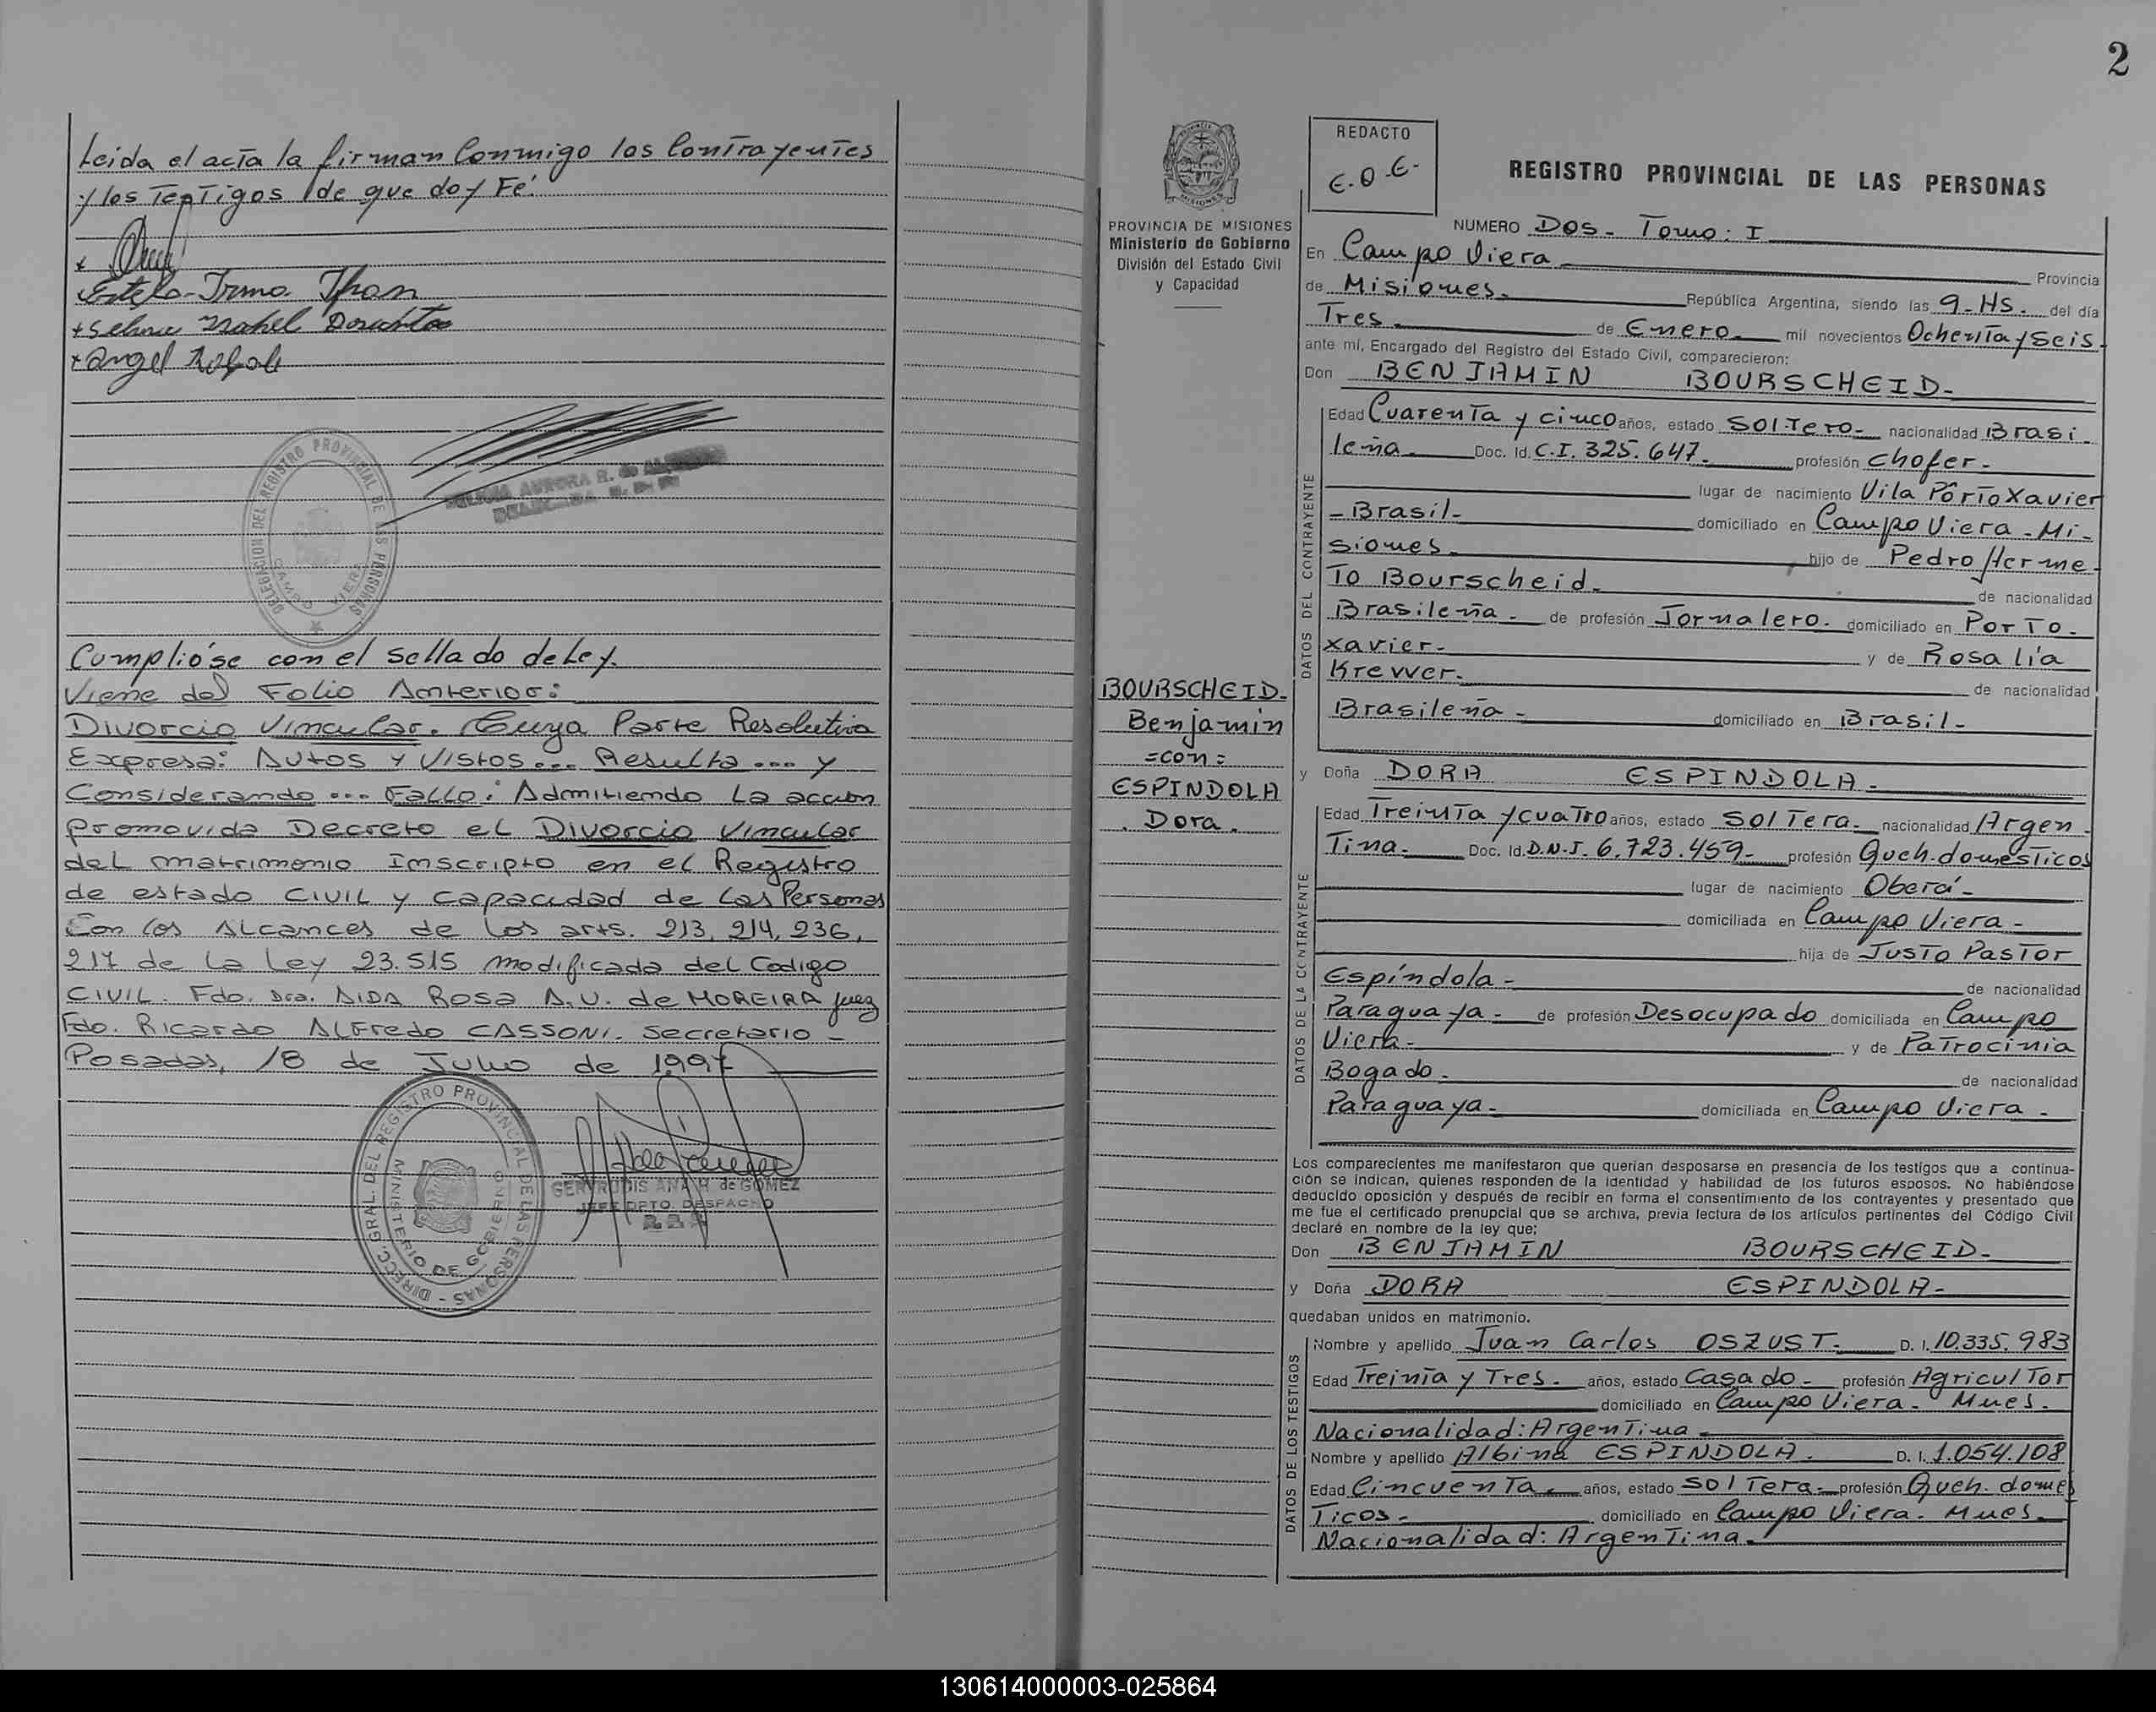 Leida el acta la firman Conmigo los Contrayentes
y los Testigos de que doy Fé.
Estela Irma Thon
Angel
DELEGACION DEL REGISTRO PROVINCIAL DE LAS PERSONAS
CAMPO VIERA
AURORA R. de
Cumplióse con el sellado de Ley.
Viene del Folio Anterior:
Divorcio Vincular. Cuya Parte Resolutiva
Expresa: Autos y Vistos... Resulta... y
Considerando... Fallo: Admitiendo La accion
promovida Decreto el Divorcio Vincular
del matrimonio Inscripto en el Registro
de estado CIVIL y capacidad de las Personas
Con los Alcances de los arts. 213, 214, 236,
217 de la Ley 23.515 modificada del Codigo
CIVIL. Fdo. Dra. AIDA Rosa A.V. de MOREIRA Juez
Fdo. Ricardo ALFredo CASSONI. Secretario -
Posadas, 18 de Julio de 1.997
DIRECC. GRAL. DEL REGISTRO PROVINCIAL DE LAS PERSONAS -
MINISTERIO DE GOBIERNO
GERTRUDIS ANA H. de GOMEZ
JEFE DPTO. DESPACHO
2
PROVINCIA DE MISIONES
Ministerio de Gobierno
División del Estado Civil
y Capacidad
BOURSCHEID-
Benjamin
=con=
ESPINDOLA
. Dora .
REDACTO
E.O.E.-
REGISTRO PROVINCIAL DE LAS PERSONAS
NUMERO DOS- Tomo: I
En Campo Viera Provincia
de Misiones. República Argentina, siendo las 9-Hs. del día
Tres de Enero mil novecientos Ochenta y Seis-
ante mí, Encargado del Registro del Estado Civil, comparecieron:
Don BENJAMIN BOURSCHEID-
DATOS DEL CONTRAYENTE
Edad Cuarenta y cinco años, estado SOLTero- nacionalidad Brasi-
leña. Doc. Id. C.I. 325.647. profesión chofer-
lugar de nacimiento Vila Pôrto Xavier
-Brasil- domiciliado en Campo Viera-Mi-
siones hijo de Pedro Herme-
To Bourscheid- de nacionalidad
Brasileña- de profesión Jornalero. domiciliado en PorTo-
xavier- y de Rosalía
Krewer- de nacionalidad
Brasileña- domiciliado en Brasil-
y Doña DORA ESPINDOLA-
DATOS DE LA CONTRAYENTE
Edad Treinta y cuatro años, estado SOLTera- nacionalidad Argen-
Tina. Doc. Id. D.N.I. 6.723.459- profesión Queh.domesticos
lugar de nacimiento Oberá-
domiciliada en Campo Viera-
hija de JUSTO PASTOR
Espíndola- de nacionalidad
Paraguaya- de profesión Desocupado domiciliada en Campo
Viera- y de Patrocinia
Bogado- de nacionalidad
Paraguaya- domiciliada en Campo Viera-
Los comparecientes me manifestaron que querían desposarse en presencia de los testigos que a continua-
ción se indican, quienes responden de la identidad y habilidad de los futuros esposos. No habiéndose
deducido oposición y después de recibir en forma el consentimiento de los contrayentes y presentado que
me fue el certificado prenupcial que se archiva, previa lectura de los artículos pertinentes del Código Civil
declaré en nombre de la ley que:
Don BENJAMIN BOURSCHEID-
y Doña DORA ESPINDOLA-
quedaban unidos en matrimonio.
DATOS DE LOS TESTIGOS
Nombre y apellido Juan Carlos OSZUST- D. I. 10.335.983
Edad Treinta y Tres- años, estado Casado- profesión Agricultor
domiciliado en Campo Viera- Mnes-
Nacionalidad: Argentina-
Nombre y apellido Albina ESPINDOLA. D. I. 1.054.108
Edad Cincuenta- años, estado SOLTera- profesión Queh. domés
Ticos- domiciliado en Campo Viera. Mnes-
Nacionalidad: Argentina-
130614000003-025864